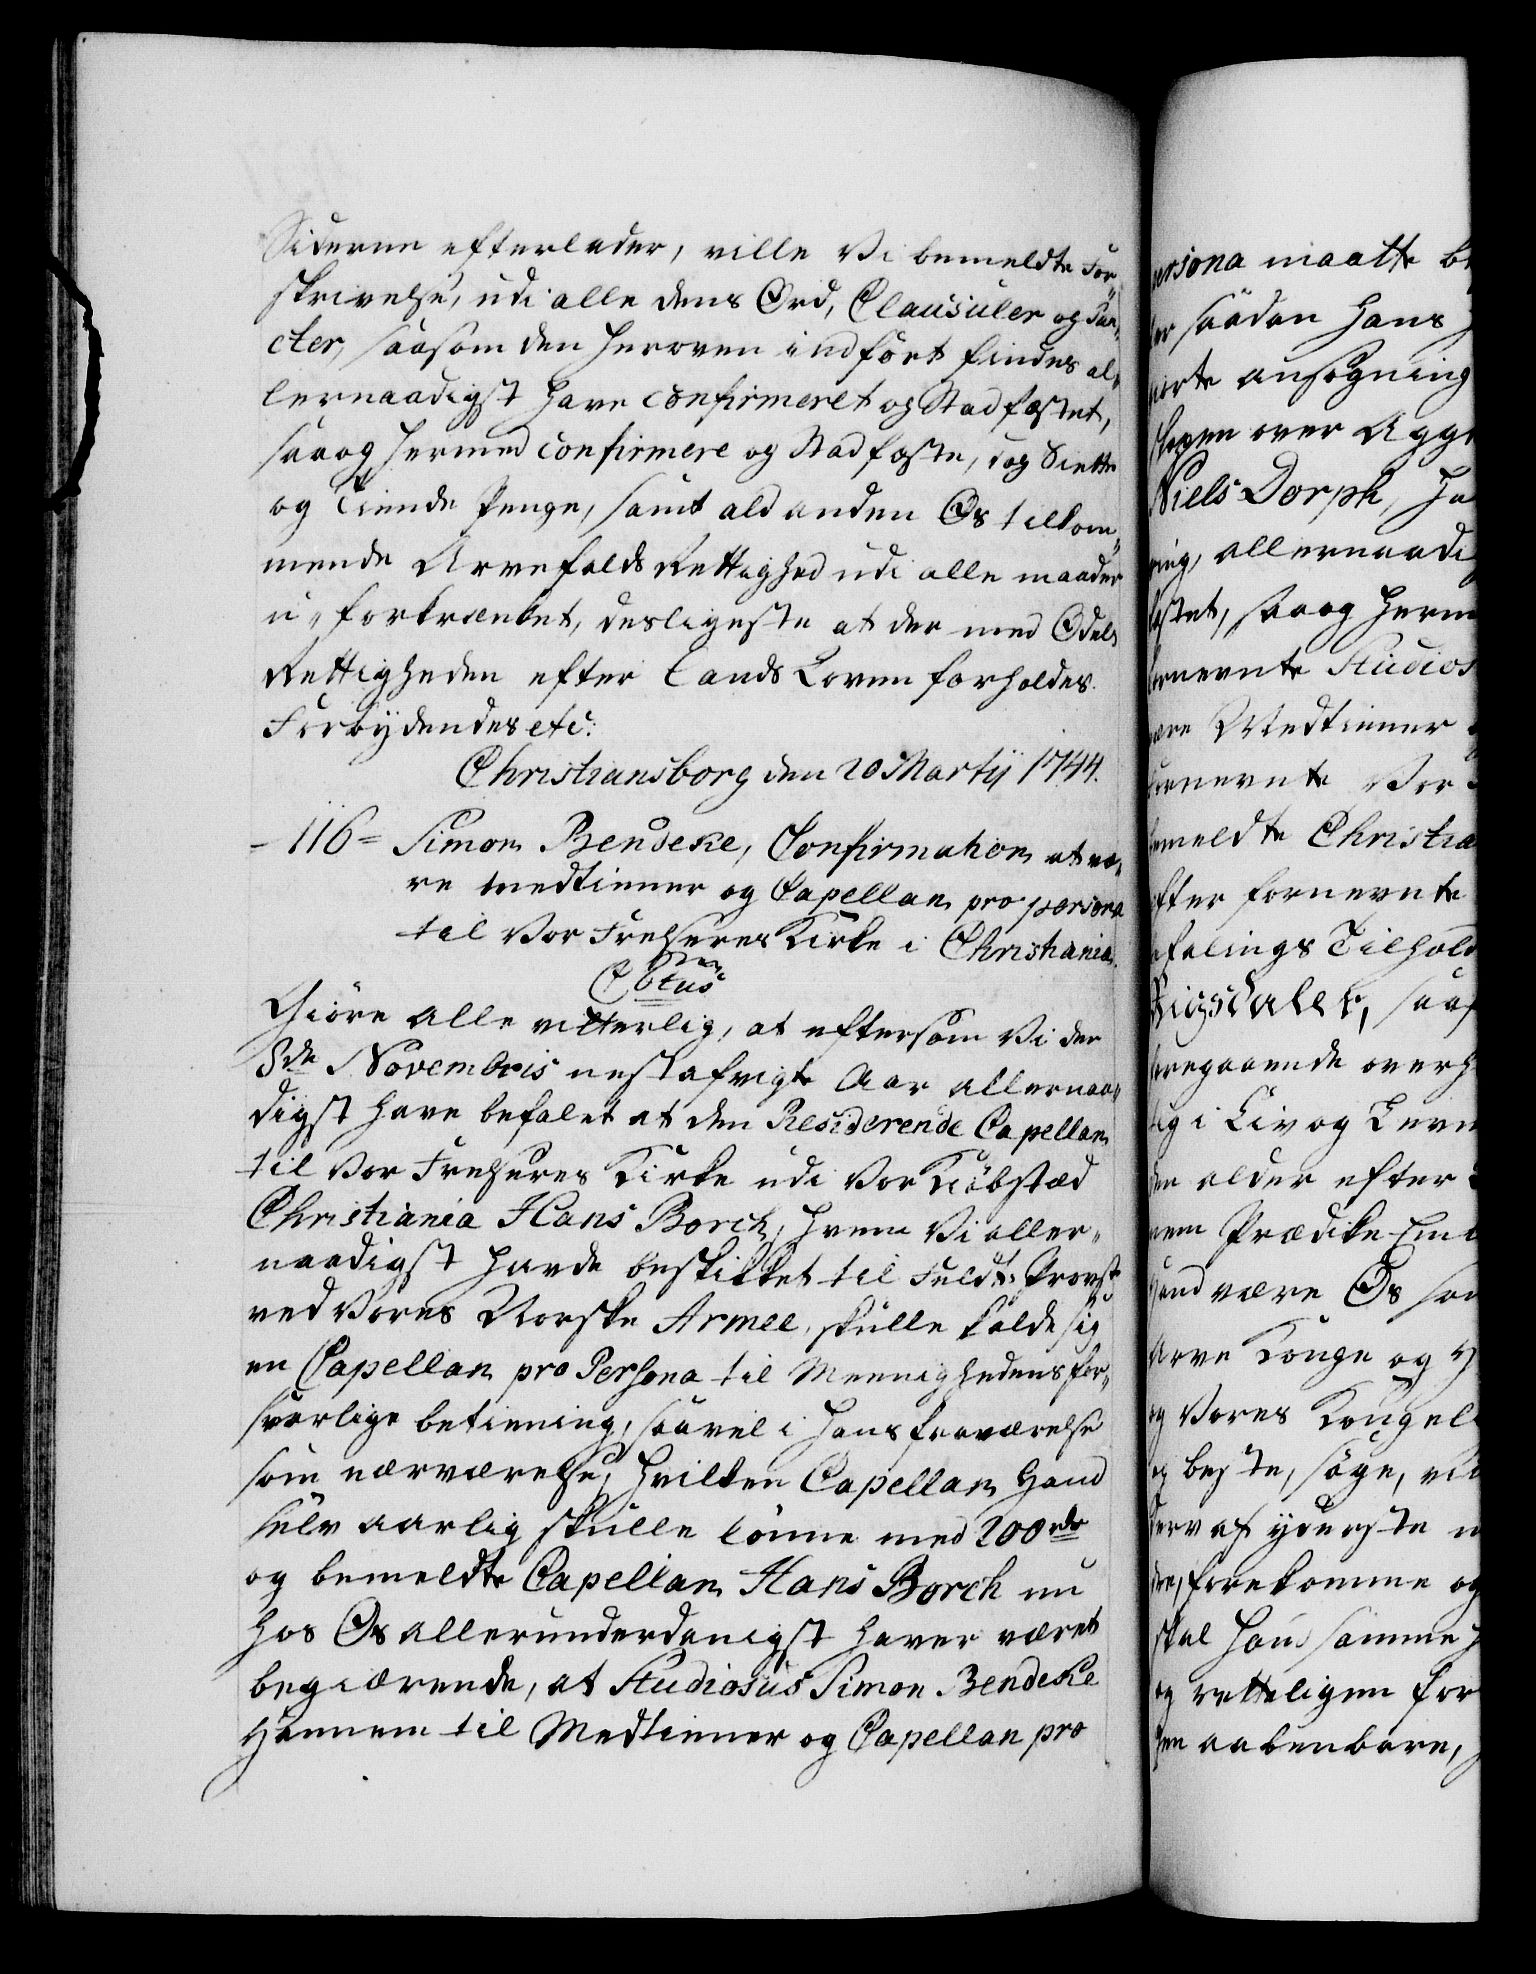 Siderne efterlader, ville Vi bemeldte For„
skrivelse, udi alle dens Ord, Clausuler og Pun„
cter, saasom den heroven indfört findes al„
lernaadigst have confirmeret og Stadfæstet,
saa og hermed confirmere og Stadfæste, dog Siette
og Tiende Penge, samt ald anden Os tilkom„
mende Arvefalds Rettighed udi alle maader
u„forkrænket, desligeste at der med Odels
Rettigheden efter Lands Loven forholdes.
Forbydendes etc:
Christiansborg den 20 Martij 1744.
- 116 = Simon Bendeke, Confirmation at væ„
re Medtiener og Capellan pro persona
til Vor Frelseres Kirke i Christiania.
C 6tus
Giöre alle vitterlig, at eftersom Vi den
8de Novembris nestafvigte Aar allernaa„
digst have befalet at den Residerende Capellan
til Vor Frelseres Kirke udi Vor Kiöbstæd
Christiania Hans Borch, hvem Vi aller„
naadigst havde beskikket til Feldt-Provst
ved Vores Norske Armee, skulle kalde sig
en Capellan pro Persona til Meenighedens for„
svarlige betiening, saavel i hans fraværelse
som nærværelse, hvilken Capellan Hand
selv aarlig skulle lönne med 200 rdr
og bemeldte Capellan Hans Borch nu
hos Os allerunderdanigst haver været
begiærende, at Studiosus Simon Bendeke
Hannem til Medtiener og Capellan pro
ersona maatte be
saadan Hans
ansøgning
over Agge
Niels Dorph, ha
ning, allernaadi
stet, saa og herm
ornevnte Studios
være Medtiener
ornevnte Vor
emeldte Christia
efter fornevnte
efalings Tilhold
Rigsdaler, saaf
oregaaende overh
lig i Liv og Levn
alder efter
nem Prædike-Em
Hand være Os som
Arve Konge og H
og Vores Kongel
og beste, søge, vii
derv af yderste
forekomme og
skal Hand samme
og retteligen for
aabenbare,